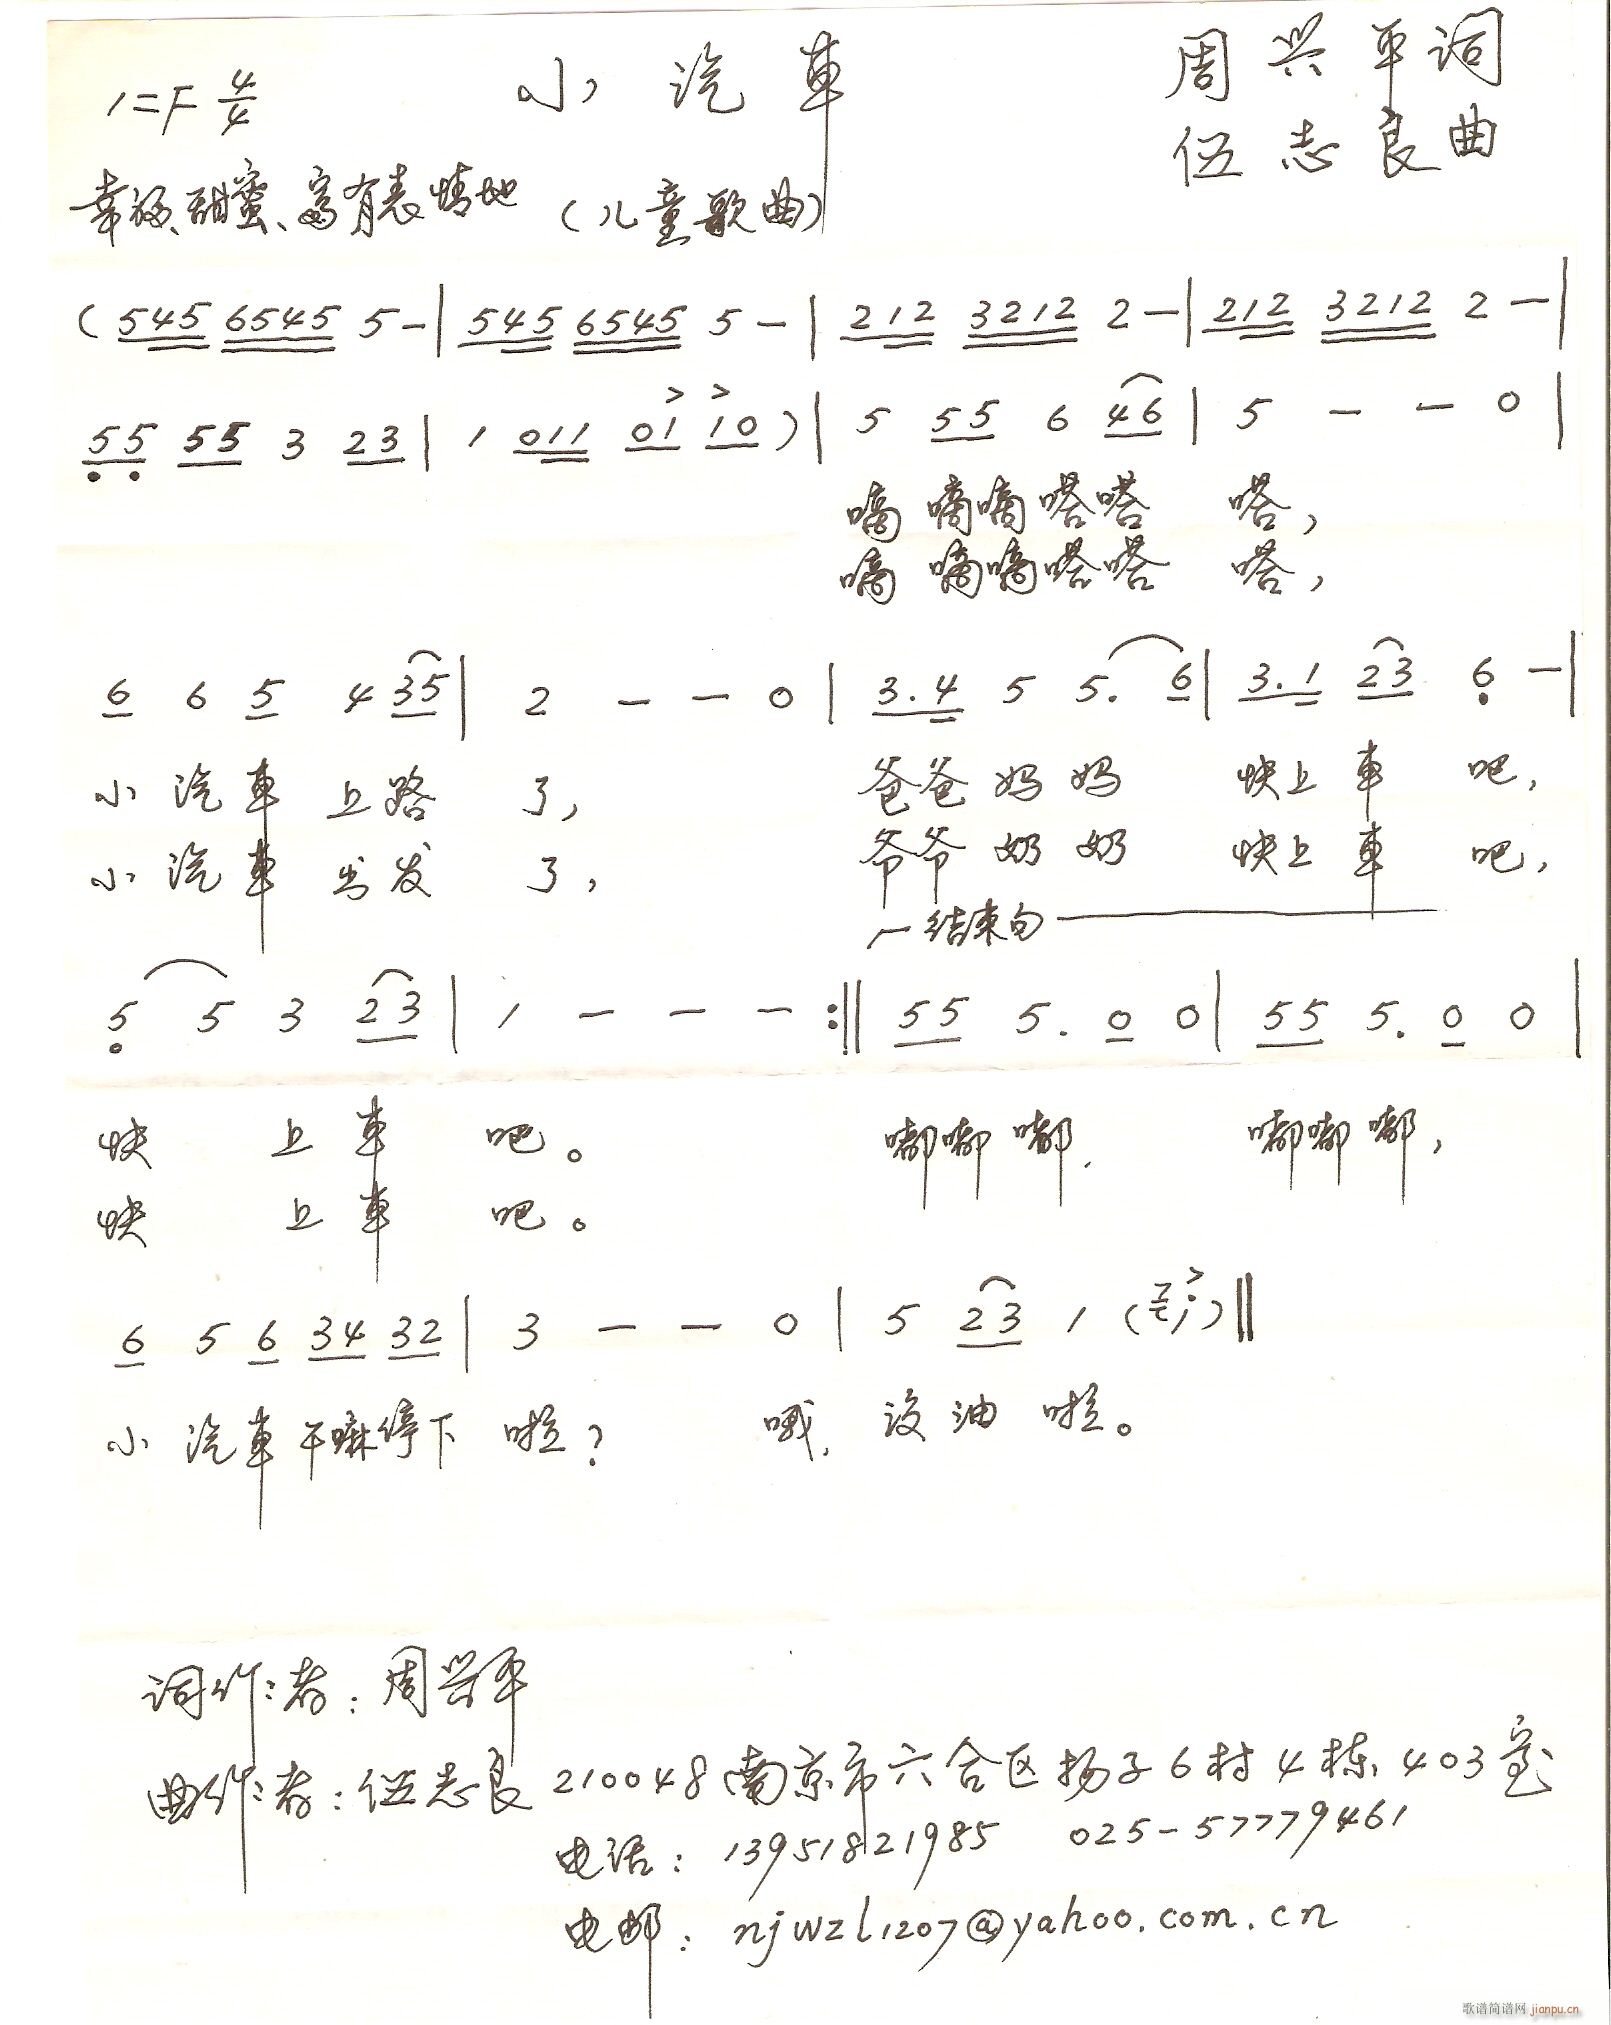 小汽車
周兴平词
1=F 4/4
伍志良曲
幸福、甜蜜、富有表情地 （儿童歌曲）
( 545 6545 5 - | 545 6545 5 - | 212 3212 2 - | 212 3212 2 - |
55 55 3 23 | 1 011 01 10 ) | 5 55 6 46 | 5 - - 0 |
嘀 嘀嘀嗒嗒 嗒，
嘀 嘀嘀嗒嗒 嗒，
6 6 5 4 35 | 2 - - 0 | 3.4 5 5. 6 | 3.1 23 6 - |
小 汽 車 上 路 了， 爸爸 妈 妈 快上 車 吧，
小 汽 車 出 发 了， 爷爷 奶 奶 快上 車 吧，
结束句
5 5 3 23 | 1 - - - :‖ 55 5. 0 0 | 55 5. 0 0 |
快 上 車 吧。 嘟嘟 嘟， 嘟嘟 嘟，
快 上 車 吧。
6 5 6 34 32 | 3 - - 0 | 5 23 1 ( 1 ) ‖
小 汽 車 干嘛停下 啦？ 哦， 没 油 啦。
词作者：周兴平
曲作者：伍志良 210048 南京市六合区扬子6村4栋403室
电话：13951821985 025-57779461
电邮：njwzl1207@yahoo.com.cn
歌谱简谱网 jianpu.cn